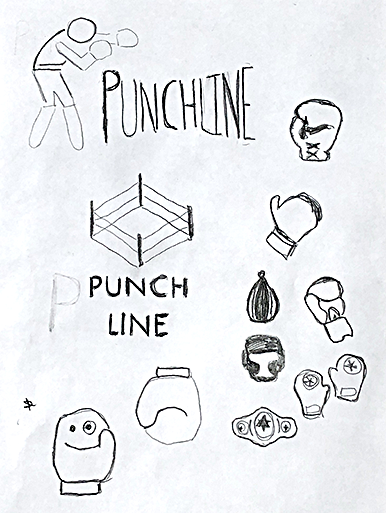 P
PUNCHLINE
P PUNCH
LINE